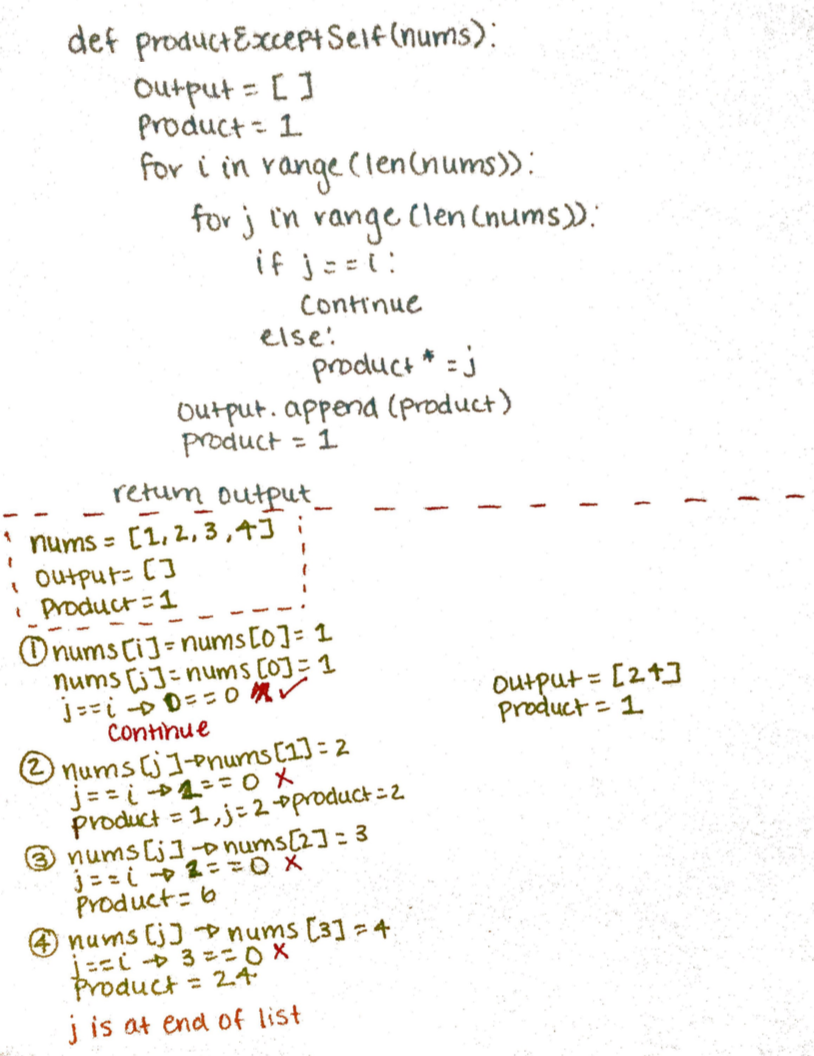 def productExceptSelf(nums):
output = [ ]
product = 1
for i in range(len(nums)):
for j in range(len(nums)):
if j == i:
continue
else:
product *= j
output.append(product)
product = 1
return output
nums = [1, 2, 3, 4]
output = []
product = 1
① nums[i] = nums[0] = 1
nums[j] = nums[0] = 1
j == i → 0 == 0 ✓
continue
② nums[j] → nums[1] = 2
j == i → 1 == 0 X
product = 1, j = 2 → product = 2
③ nums[j] → nums[2] = 3
j == i → 2 == 0 X
product = 6
④ nums[j] → nums[3] = 4
j == i → 3 == 0 X
product = 24
j is at end of list
output = [24]
product = 1